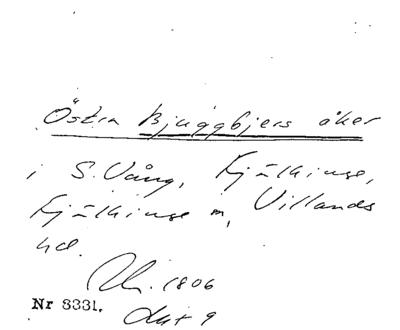 Östra Bjuggbjers åker
i S. Vång, Fjälkinge,
Fjälkinge m, Villands
hd.
1806
Nr 3331.
akt 9